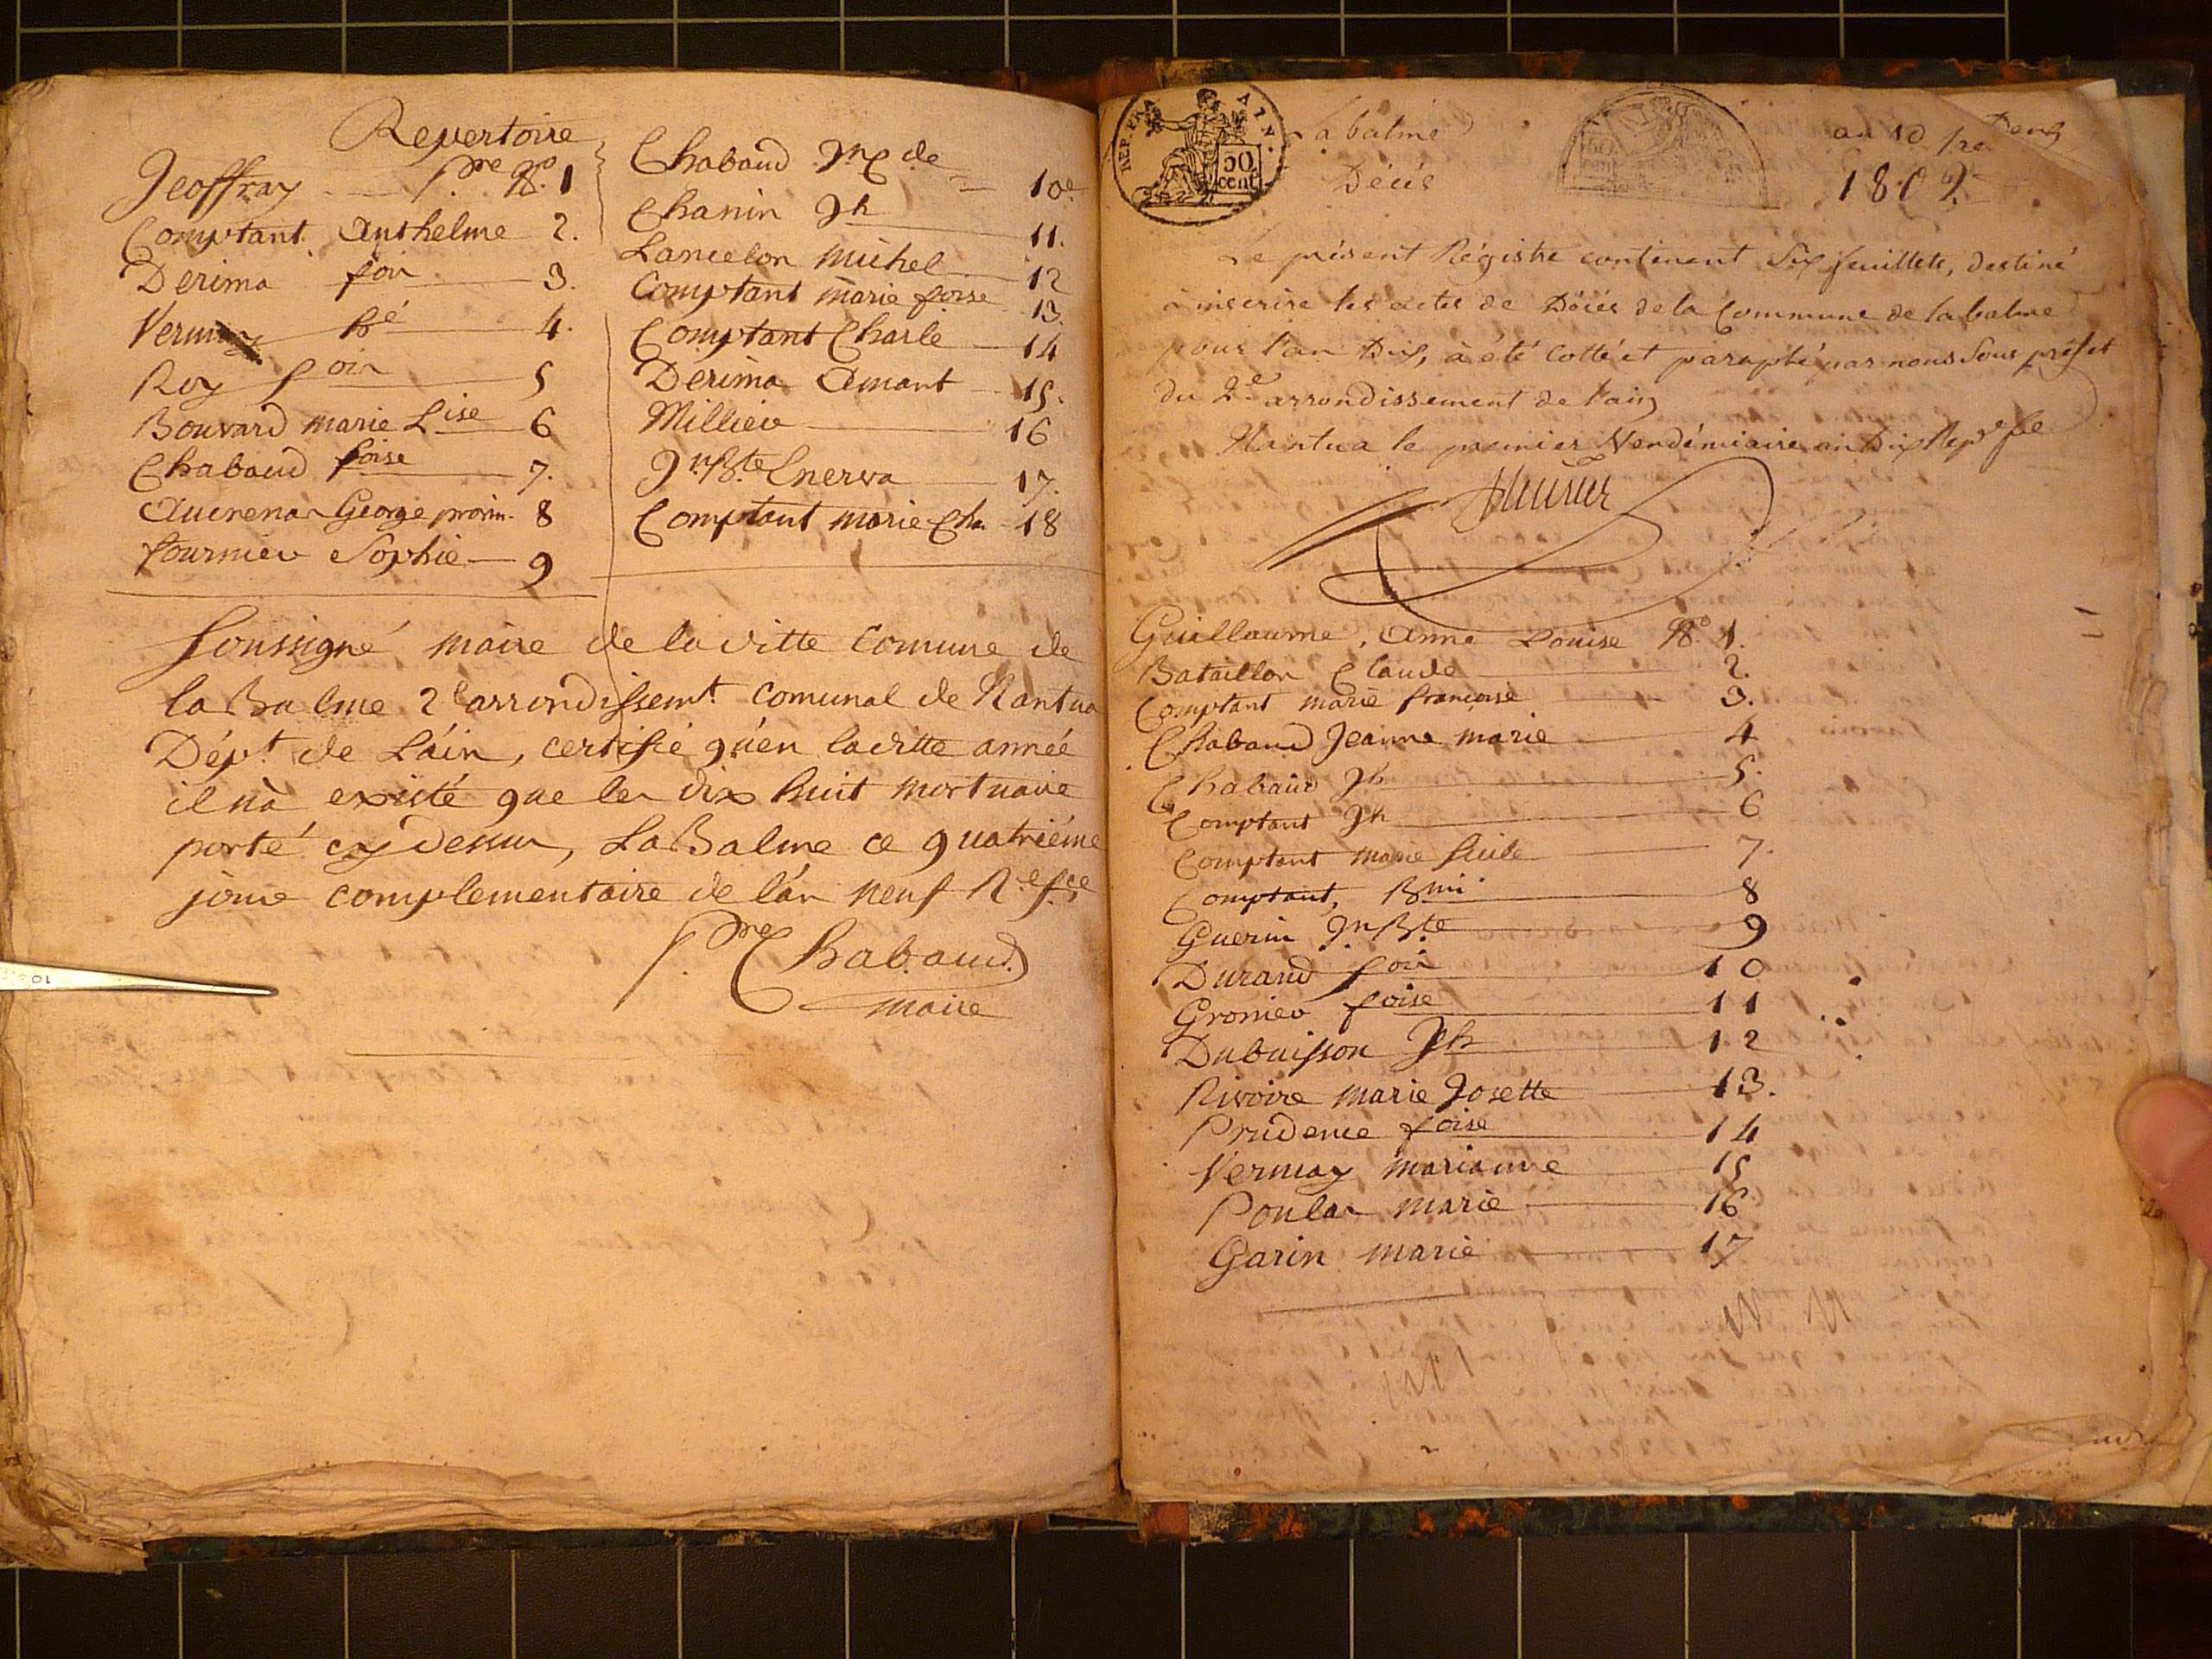 Repertoire
Jeoffray p.re N.o 1
Comptant Anthelme 2.
Derima fois 3.
Vermay Bé 4.
Roy fois 5
Bouvard marie Lise 6
Chabaud foise 7.
George 8
fournier Sophie 9
Chabaud M.C de 10e
Chanin Jh 11.
Lancelon Michel 12
Comptant marie foise 13.
Comptant Charle 14
Derima Amant 15.
Millieu 16
Jn. Bte Enerva 17.
Comptant marie Cha. 18
Soussigné maire de la ditte Comune de
la Balme 2e arrondissemt. comunal de Nantua
Dépt. de L'áin, certifié qu'en laditte année
il n'à existé que les dix huit mortuaire
porté cy dessus, La Balme ce quatriéme
jour complementaire de l'an neuf R.e f.se
p.re Chabaud
maire
REP. FRA
50
cent
Labalme
Décés
an 10
1802.
Le présent Régistre contenent Six feuillets, destiné
à inscrire les actes de Décés de la Commune de labalme
pour l'an Dix, à été Cotté et paraphé par nous Sous préfet
du 2e arrondissement de l'ain
Nantua le premier Vendémiaire an Dix Repe. fse
Guillaume, Anne Louise No. 1.
Bataillon Claude 2.
Comptant marie francoise 3.
Chabaud Jeanne marie 4
Chabaud Jh 5.
Comptant Jh 6
Comptant marie 7.
Comptant, Bmi. 8
Guerin Jn Bte 9
Durand fois 10
Gronier foise 11
Dubuisson Jh 12
Rivoire marie Josette 13.
Prudence foise 14
Vermay marianne 15
Poulas marie 16
Garin marie 17